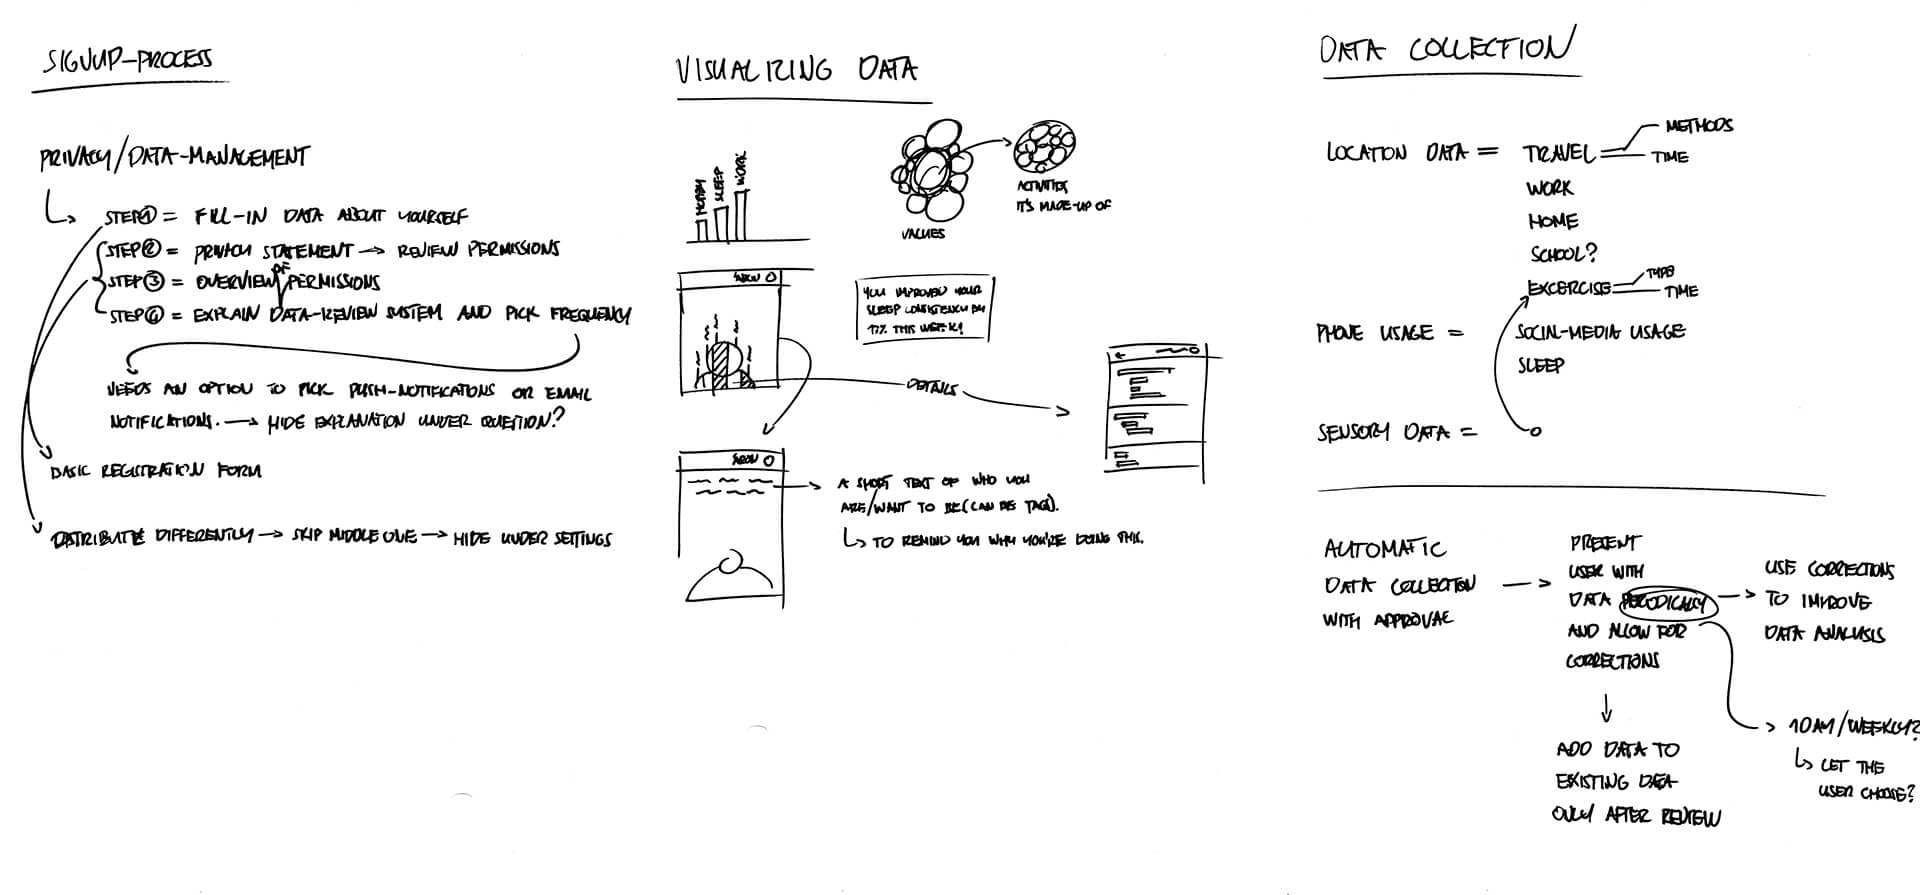 SIGNUP-PROCESS
PRIVACY/DATA-MANAGEMENT
STEP 1 = FILL-IN DATA ABOUT YOURSELF
STEP 2 = PRIVACY STATEMENT → REVIEW PERMISSIONS
STEP 3 = OVERVIEW OF PERMISSIONS
STEP 4 = EXPLAIN DATA-REVIEW SYSTEM AND PICK FREQUENCY
NEEDS AN OPTION TO PICK PUSH-NOTIFICATIONS OR EMAIL
NOTIFICATIONS. → HIDE EXPLANATION UNDER QUESTION?
BASIC REGISTRATION FORM
DISTRIBUTE DIFFERENTLY → SKIP MIDDLE ONE → HIDE UNDER SETTINGS
VISUALIZING DATA
HOBBY
SLEEP
WORK
VALUES
ACTIVITIES
IT'S MADE-UP OF
YOU IMPROVED YOUR
SLEEP CONSISTENCY BY
17% THIS WEEK!
DETAILS
A SHORT TEXT OF WHO YOU
ARE/WANT TO BE (CAN BE TAGS).
↳ TO REMIND YOU WHY YOU'RE DOING THIS.
DATA COLLECTION
LOCATION DATA = TRAVEL
METHODS
TIME
WORK
HOME
SCHOOL?
EXCERCISE
TYPE
TIME
PHONE USAGE = SOCIAL-MEDIA USAGE
SLEEP
SENSORY DATA =
AUTOMATIC
DATA COLLECTION
WITH APPROVAL
PRESENT
USER WITH
DATA PERIODICALLY
AND ALLOW FOR
CORRECTIONS
USE CORRECTIONS
TO IMPROVE
DATA ANALYSIS
ADD DATA TO
EXISTING DATA
ONLY AFTER REVIEW
1DAY/WEEKLY?
↳ LET THE
USER CHOOSE?